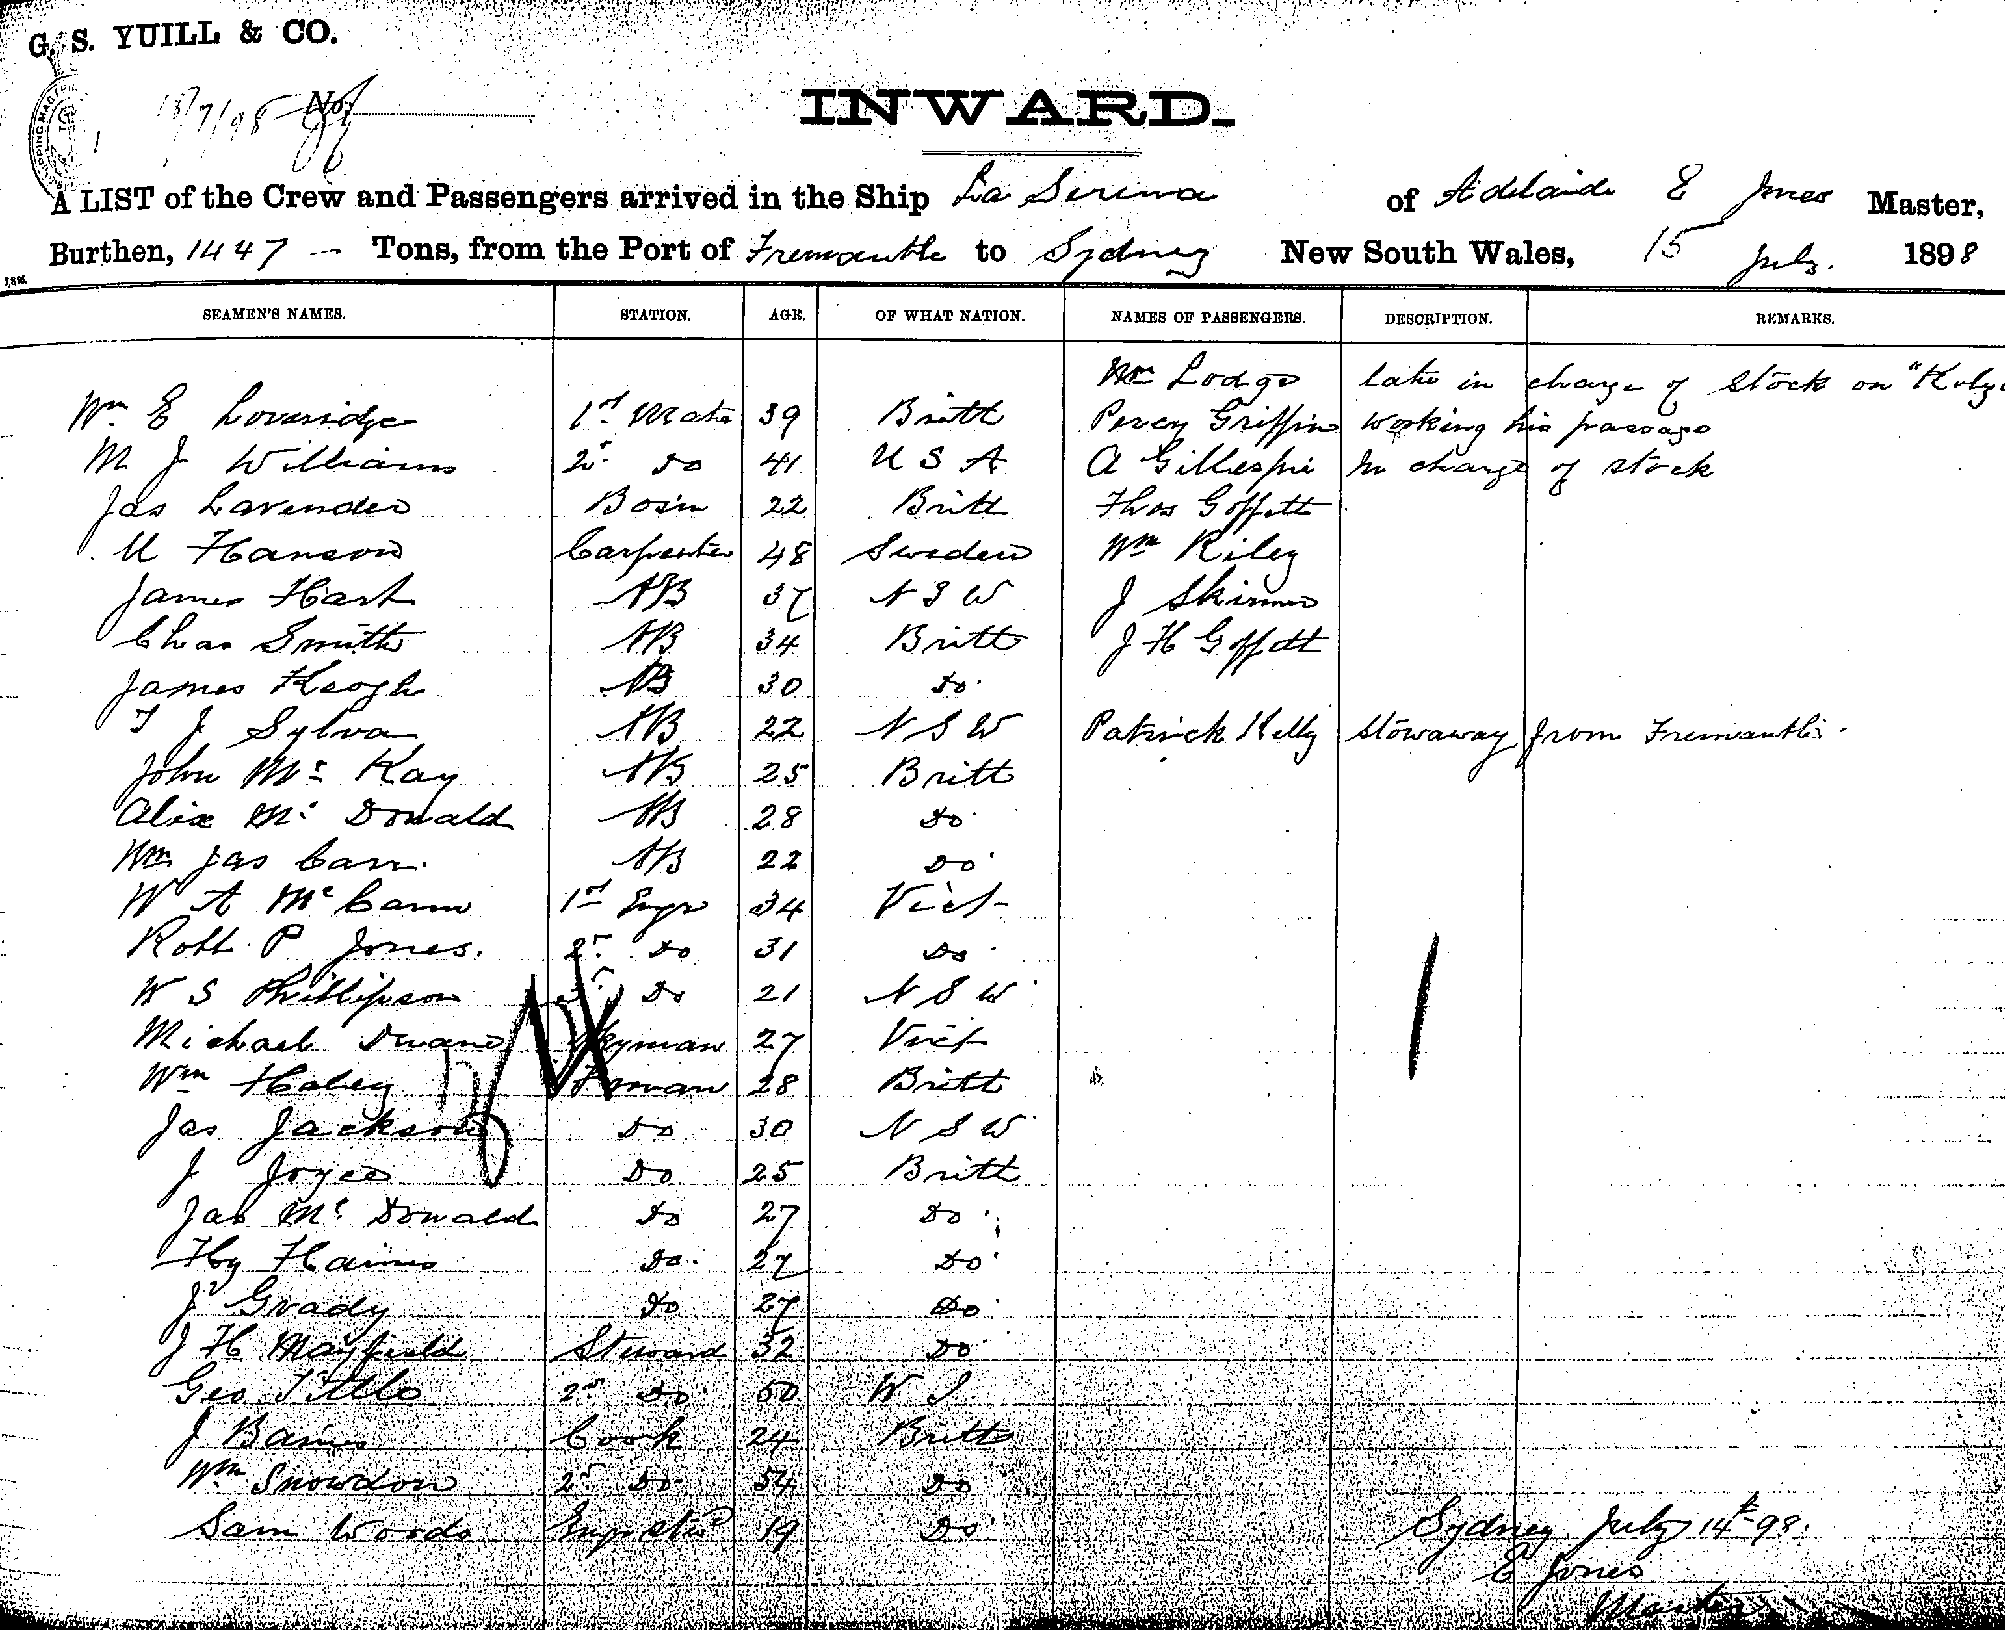 G. S. YUILL & CO.
15/7/98 No.
INWARD.
A LIST of the Crew and Passengers arrived in the Ship La Serena of Adelaide E Jones Master,
Burthen, 1447 — Tons, from the Port of Fremantle to Sydney New South Wales, 15 July. 1898
SEAMEN'S NAMES. STATION. AGE. OF WHAT NATION. NAMES OF PASSENGERS. DESCRIPTION. REMARKS.
Mr Lodge late in charge of stock on
Wm E Loveridge 1st Mate 39 Britt Percy Griffin working his passage
M J Williams 2d Do 41 U S A A Gillespie In charge of stock
Jas Lavender Bosin 22 Britt Thos Goffett
U Hanson Carpenter 48 Sweden Wm Riley
James Hart AB 37 N S W J Skinner
Chas Smith AB 34 Britt J H Goffett
James Keogh AB 30 Do
T J Sylva AB 22 N S W Patrick Kelly Stowaway from Fremantle.
John Mc Kay AB 25 Britt
Alix Mc Donald AB 28 Do
Wm Jas Carr. AB 22 Do
W A Mc Cann 1st Engr 34 Vict
Robt P Jones. 2d Do 31 Do
W S Phillipson 3d Do 21 N S W
Michael Duane 27 Vict
Wm Haley Fireman 28 Britt
Jas Jackson Do 30 N S W
J Joyce Do 25 Britt
Jas Mc Donald Do 27 Do
Hy Haines Do 27 Do
J Grady Do 27 Do
J H Mayfield Steward 32 Do
Geo 2d Do 50 W I
J Baines Cook 24 Britt
Wm Snowdon 2d Do 54 Do
Sam Woods 19 Do
Sydney July 14th 98.
E Jones
Master